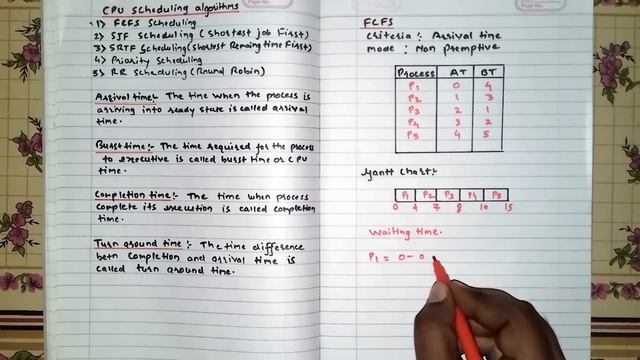 CPU Scheduling algorithms
1) FCFS Scheduling
2) SJF Scheduling (Shortest job First)
3) SRTF Scheduling (Shortest Remaing time First)
4) Priority Scheduling
5) RR Scheduling (Round Robin)
Arrival time:- The time when the process is
arriving into ready state is called arrival
time.
Burst time:- The time required for the process
to executive is called burst time or CPU
time.
Completion time:- The time when process
complete its execution is called completion
time.
Turn around time:- The time difference
betn completion and arrival time is
called turn around time.
Page No.
FCFS
Criteria :- Arrival time
mode : Non premptive
Process AT BT
P1 0 4
P2 1 3
P3 2 1
P4 3 2
P5 4 5
Gantt Chart:-
P1 P2 P3 P4 P5
0 4 7 8 10 15
Waiting time.
P1 = 0 - 0